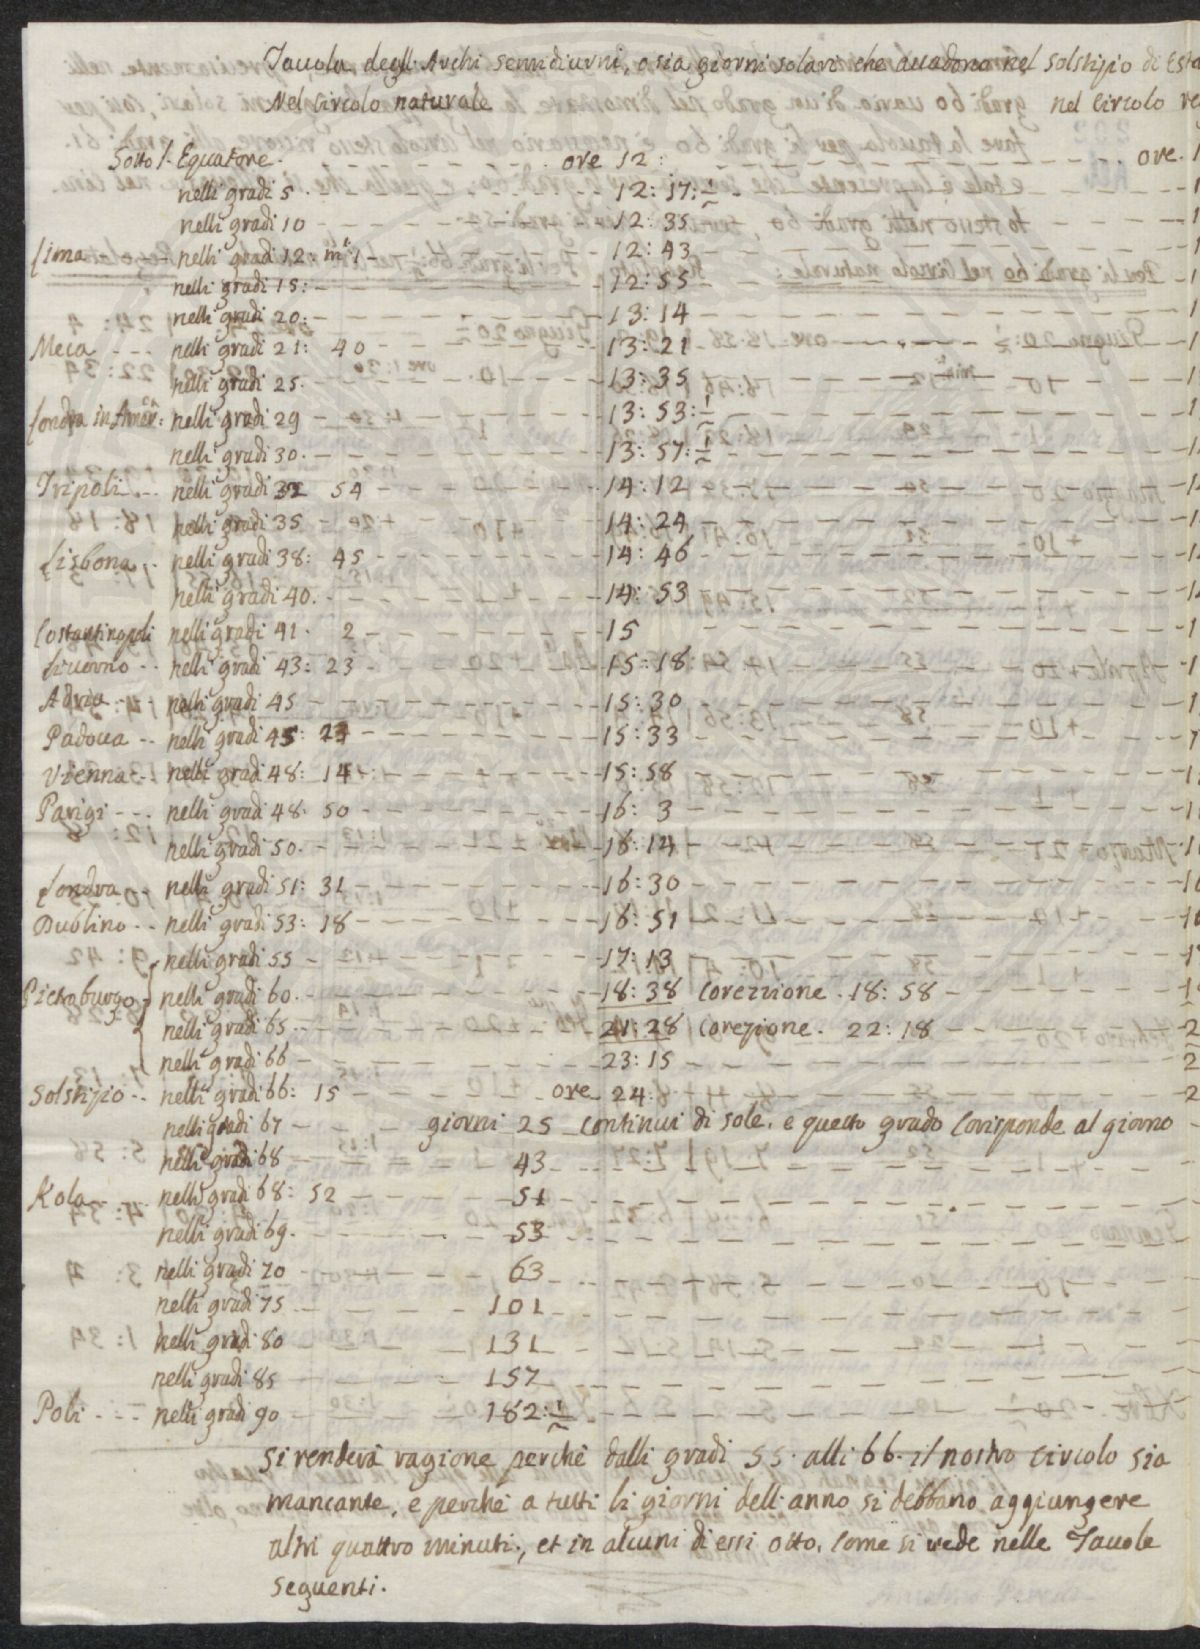 Tauola degl. Archi semidiurni, o sia giorni solari che accadono nel solstizio di Esta
Nel Circolo naturale nel Circolo re
Sotto l. Equatore. ore 12: ore. 1
nelli gradi 5 12: 17: ½ 1
nelli gradi 10 12: 35 1
Lima nelli gradi 12: mti 1 12: 43 1
nelli gradi 15: 12: 55 1
nelli gradi 20: 13: 14 1
Meca nelli gradi 21: 40 13: 21 1
nelli gradi 25. 13: 35 1
Londra in Amer.ca: nelli gradi 29 13: 53: ½ 1
nelli gradi 30. 13: 57: ½ 1
Tripoli nelli gradi 32 54 14: 12 1
nelli gradi 35 14: 24 1
Lisbona nelli gradi 38: 45 14: 46 1
nelli gradi 40. 14: 53 1
Costantinopoli nelli gradi 41. 2 15 1
Liuorno nelli gradi 43: 23 15: 18 1
Adria nelli gradi 45 15: 30 1
Padoua nelli gradi 45: 23 15: 33 1
Vienna nelli gradi 48: 14 15: 58 1
Parigi nelli gradi 48. 50 16: 3 1
nelli gradi 50. 16: 14 1
Londra nelli gradi 51: 31 16: 30 16
Dublino nelli gradi 53: 18 16: 51 16
nelli gradi 55 17: 13 17
Pietroburgo nelli gradi 60. 18: 38 Corezzione. 18: 58 1
nelli gradi 65. 21: 28 Corezione. 22: 18 2
nelli gradi 66 23: 15 2
Solstizio nelli gradi 66: 15 ore 24. 2
nelli gradi 67 giorni 25 continui di sole, e questo grado Corisponde al giorno
nelli gradi 68 43
Kola nelli gradi 68: 52 51
nelli gradi 69. 53
nelli gradi 70 63
nelli gradi 75 101
nelli gradi 80 131
nelli gradi 85 157
Poli nelli gradi 90 182: ½
si renderà ragione perchè dalli gradi 55. alli 66. il nostro circolo sia
mancante, e perchè a tutti li giorni dell. anno si debbano aggiungere
altri quattro minuti, et in alcuni di essi otto, come si vede nelle Tauole
seguenti.